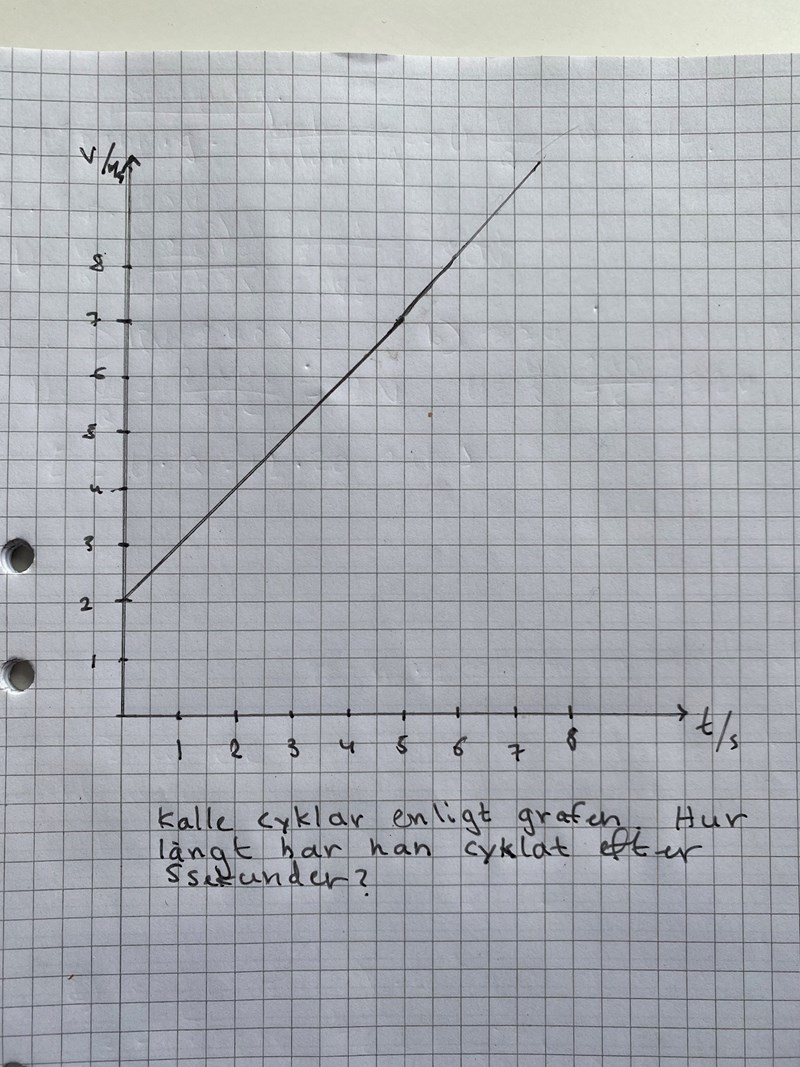 v/m/s
8
7
6
5
4
3
2
1
1 2 3 4 5 6 7 8
t/s
Kalle cyklar enligt grafen. Hur
långt har han cyklat efter
5sekunder?